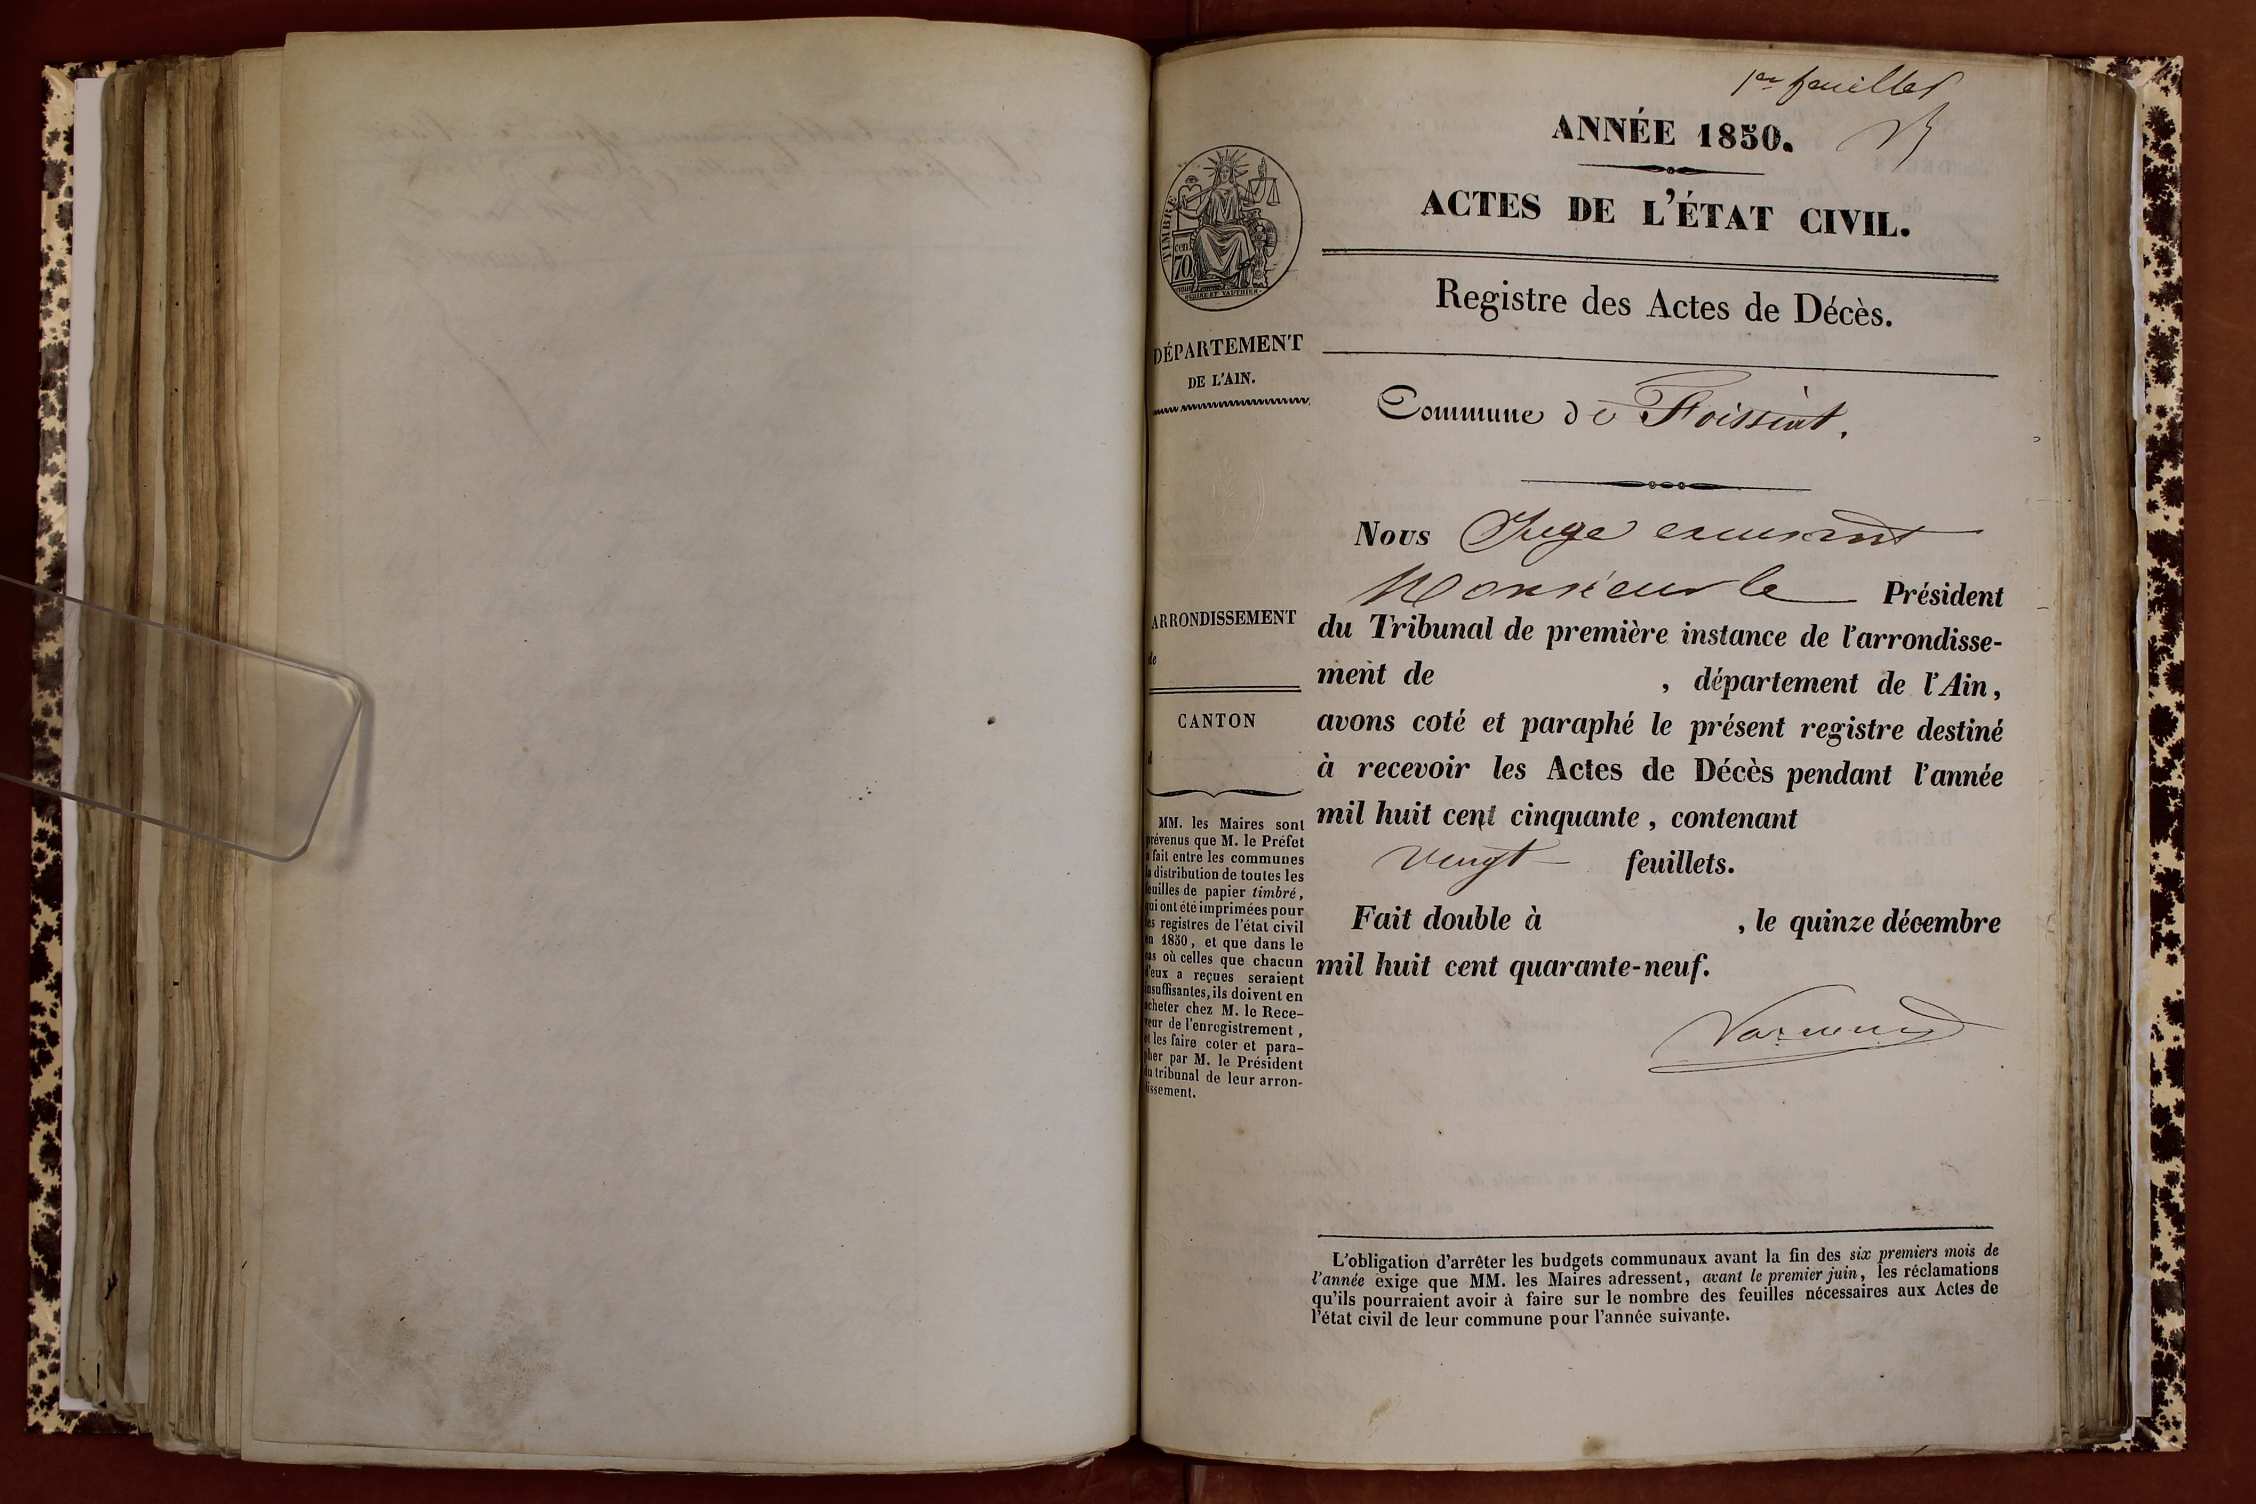 1er feuillet
ANNÉE 1850.
ACTES DE L'ÉTAT CIVIL.
Registre des Actes de Décès.
Commune de Foissiat.
TIMBRE
cen.
70
DÉPARTEMENT
DE L'AIN.
ARRONDISSEMENT
de
CANTON
d
MM. les Maires sont
prévenus que M. le Préfet
a fait entre les communes
la distribution de toutes les
feuilles de papier timbré,
qui ont été imprimées pour
les registres de l'état civil
en 1850, et que dans le
cas où celles que chacun
d'eux a reçues seraient
insuffisantes, ils doivent en
acheter chez M. le Rece-
veur de l'enregistrement,
et les faire coter et para-
pher par M. le Président
du tribunal de leur arron-
dissement.
Nous Juge
Monsieur le Président
du Tribunal de première instance de l'arrondisse-
ment de , département de l'Ain,
avons coté et paraphé le présent registre destiné
à recevoir les Actes de Décès pendant l'année
mil huit cent cinquante, contenant
vingt feuillets.
Fait double à , le quinze décembre
mil huit cent quarante-neuf.
L'obligation d'arrêter les budgets communaux avant la fin des six premiers mois de
l'année exige que MM. les Maires adressent, avant le premier juin, les réclamations
qu'ils pourraient avoir à faire sur le nombre des feuilles nécessaires aux Actes de
l'état civil de leur commune pour l'année suivante.